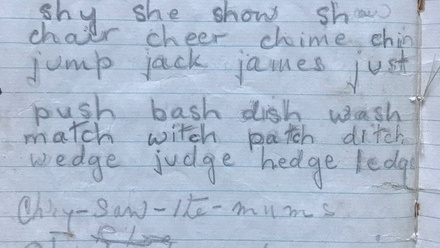 shy she show
chair cheer chime chin
jump jack james just
push bash dish wash
match witch patch ditch
wedge judge hedge ledge
Chry-San-the-mums